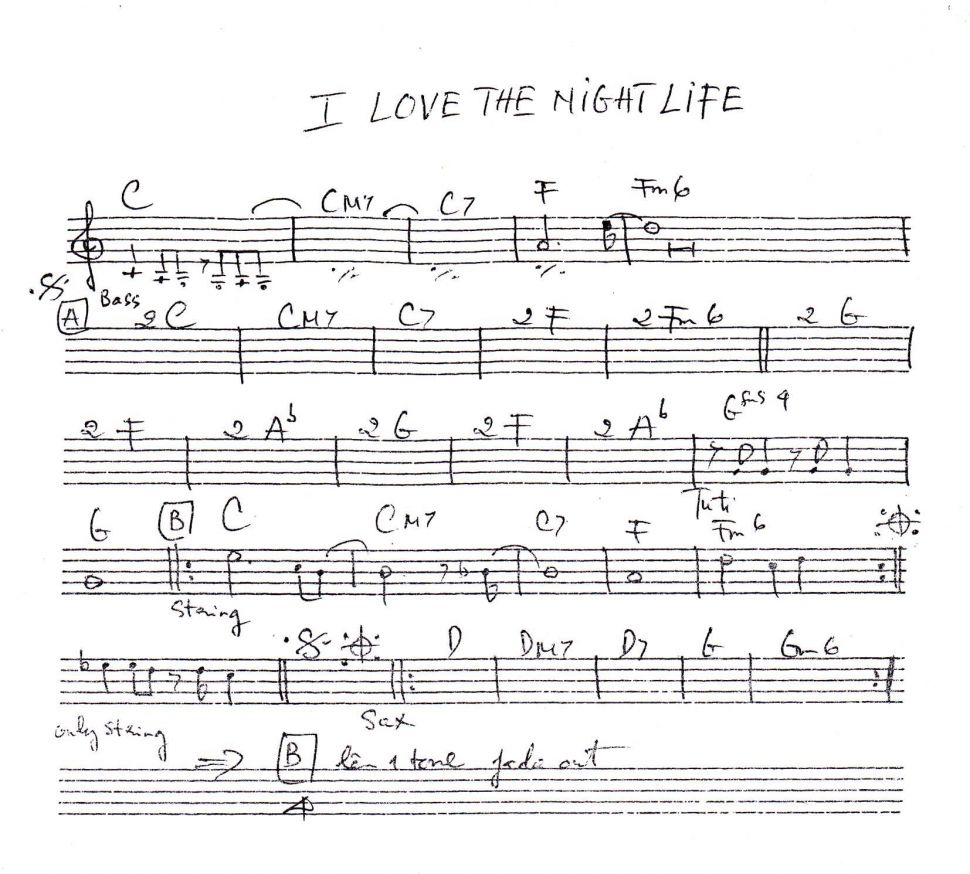 I LOVE THE NIGHT LIFE
C CM7 C7 F Fm6
Bass
A 2 C CM7 C7 2 F 2 Fm6 2 G
2 F 2 Ab 2 G 2 F 2 Ab Gsus4
Tuti
G B C CM7 C7 F Fm6
String
D DM7 D7 G Gm6
only string Sax
=> B lên 1 tone fade out